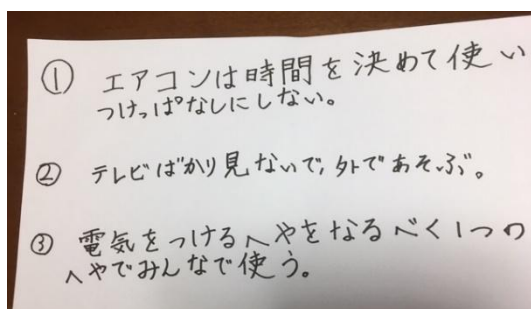 ① エアコンは時間を決めて使い
つけっぱなしにしない。
② テレビばかり見ないで、外であそぶ。
③ 電気をつけるへやをなるべく1つの
へやでみんなで使う。